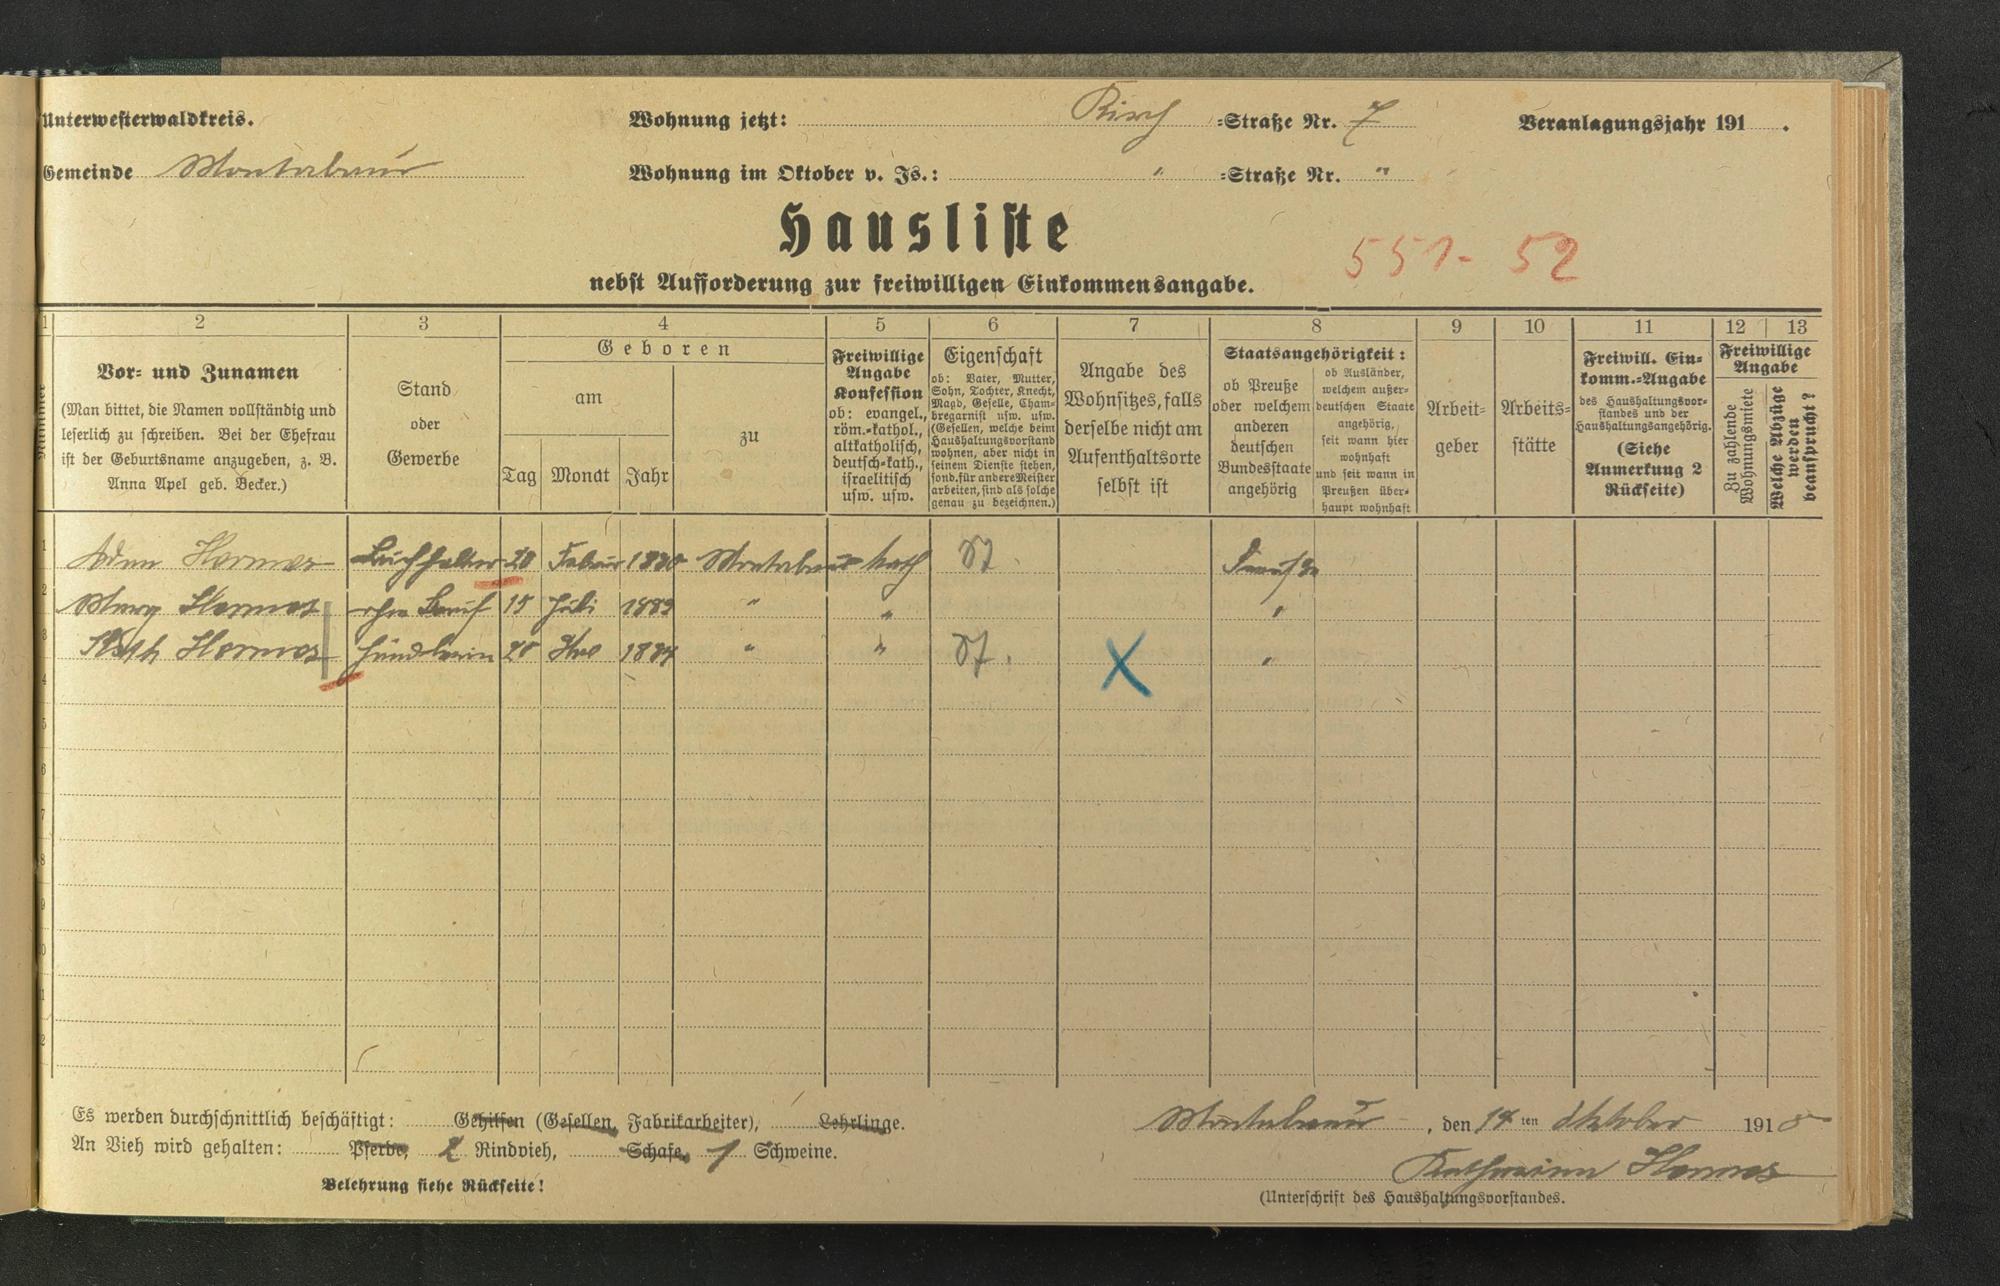 Unterwesterwaldkreis.
Wohnung jetzt: Kirch =Straße Nr. 7
Veranlagungsjahr 191 .
Gemeinde Montabaur
Wohnung im Oktober v. Js.: " =Straße Nr. "
Hausliste
551-52
nebst Aufforderung zur freiwilligen Einkommensangabe.
1 2 3 4 5 6 7 8 9 10 11 12 13
Nummer
Vor- und Zunamen
(Man bittet, die Namen vollständig und
leserlich zu schreiben. Bei der Ehefrau
ist der Geburtsname anzugeben, z. B.
Anna Apel geb. Becker.)
Stand
oder
Gewerbe
Geboren
am
Tag Monat Jahr
zu
Freiwillige
Angabe
Konfession
ob: evangel.,
röm.-kathol.,
altkatholisch,
deutsch-kath.,
israelitisch
usw. usw.
Eigenschaft
ob: Vater, Mutter,
Sohn, Tochter, Knecht,
Magd, Geselle, Cham-
bregarnist usw. usw.
(Gesellen, welche beim
Haushaltungsvorstand
wohnen, aber nicht in
seinem Dienste stehen,
sond. für andere Meister
arbeiten, sind als solche
genau zu bezeichnen.)
Angabe des
Wohnsitzes, falls
derselbe nicht am
Aufenthaltsorte
selbst ist
Staatsangehörigkeit:
ob Preuße
oder welchem
anderen
deutschen
Bundesstaate
angehörig
ob Ausländer,
welchem außer-
deutschen Staate
angehörig,
seit wann hier
wohnhaft
und seit wann in
Preußen über-
haupt wohnhaft
Arbeit-
geber
Arbeits-
stätte
Freiwill. Ein-
komm.-Angabe
des Haushaltungsvor-
standes und der
Haushaltungsangehörig.
(Siehe
Anmerkung 2
Rückseite)
Freiwillige
Angabe
Zu zahlende
Wohnungsmiete
Welche Abzüge
werden
beansprucht?
1 Hermes Buchhalter 20 Februar 1880 Montabaur kath Preuße
2 Marg Hermes ohne Beruf 15 Juli 1883 " " "
3 Kath Hermes Händlerin 20 1884 " " X "
4
5
6
7
8
9
10
11
12
Es werden durchschnittlich beschäftigt: Gehilfen (Gesellen, Fabrikarbeiter), Lehrlinge.
An Vieh wird gehalten: Pferde, 2 Rindvieh, Schafe, 1 Schweine.
Belehrung siehe Rückseite!
Montabaur, den 14 ten Oktober 1918
Katharina Hermes
(Unterschrift des Haushaltungsvorstandes.